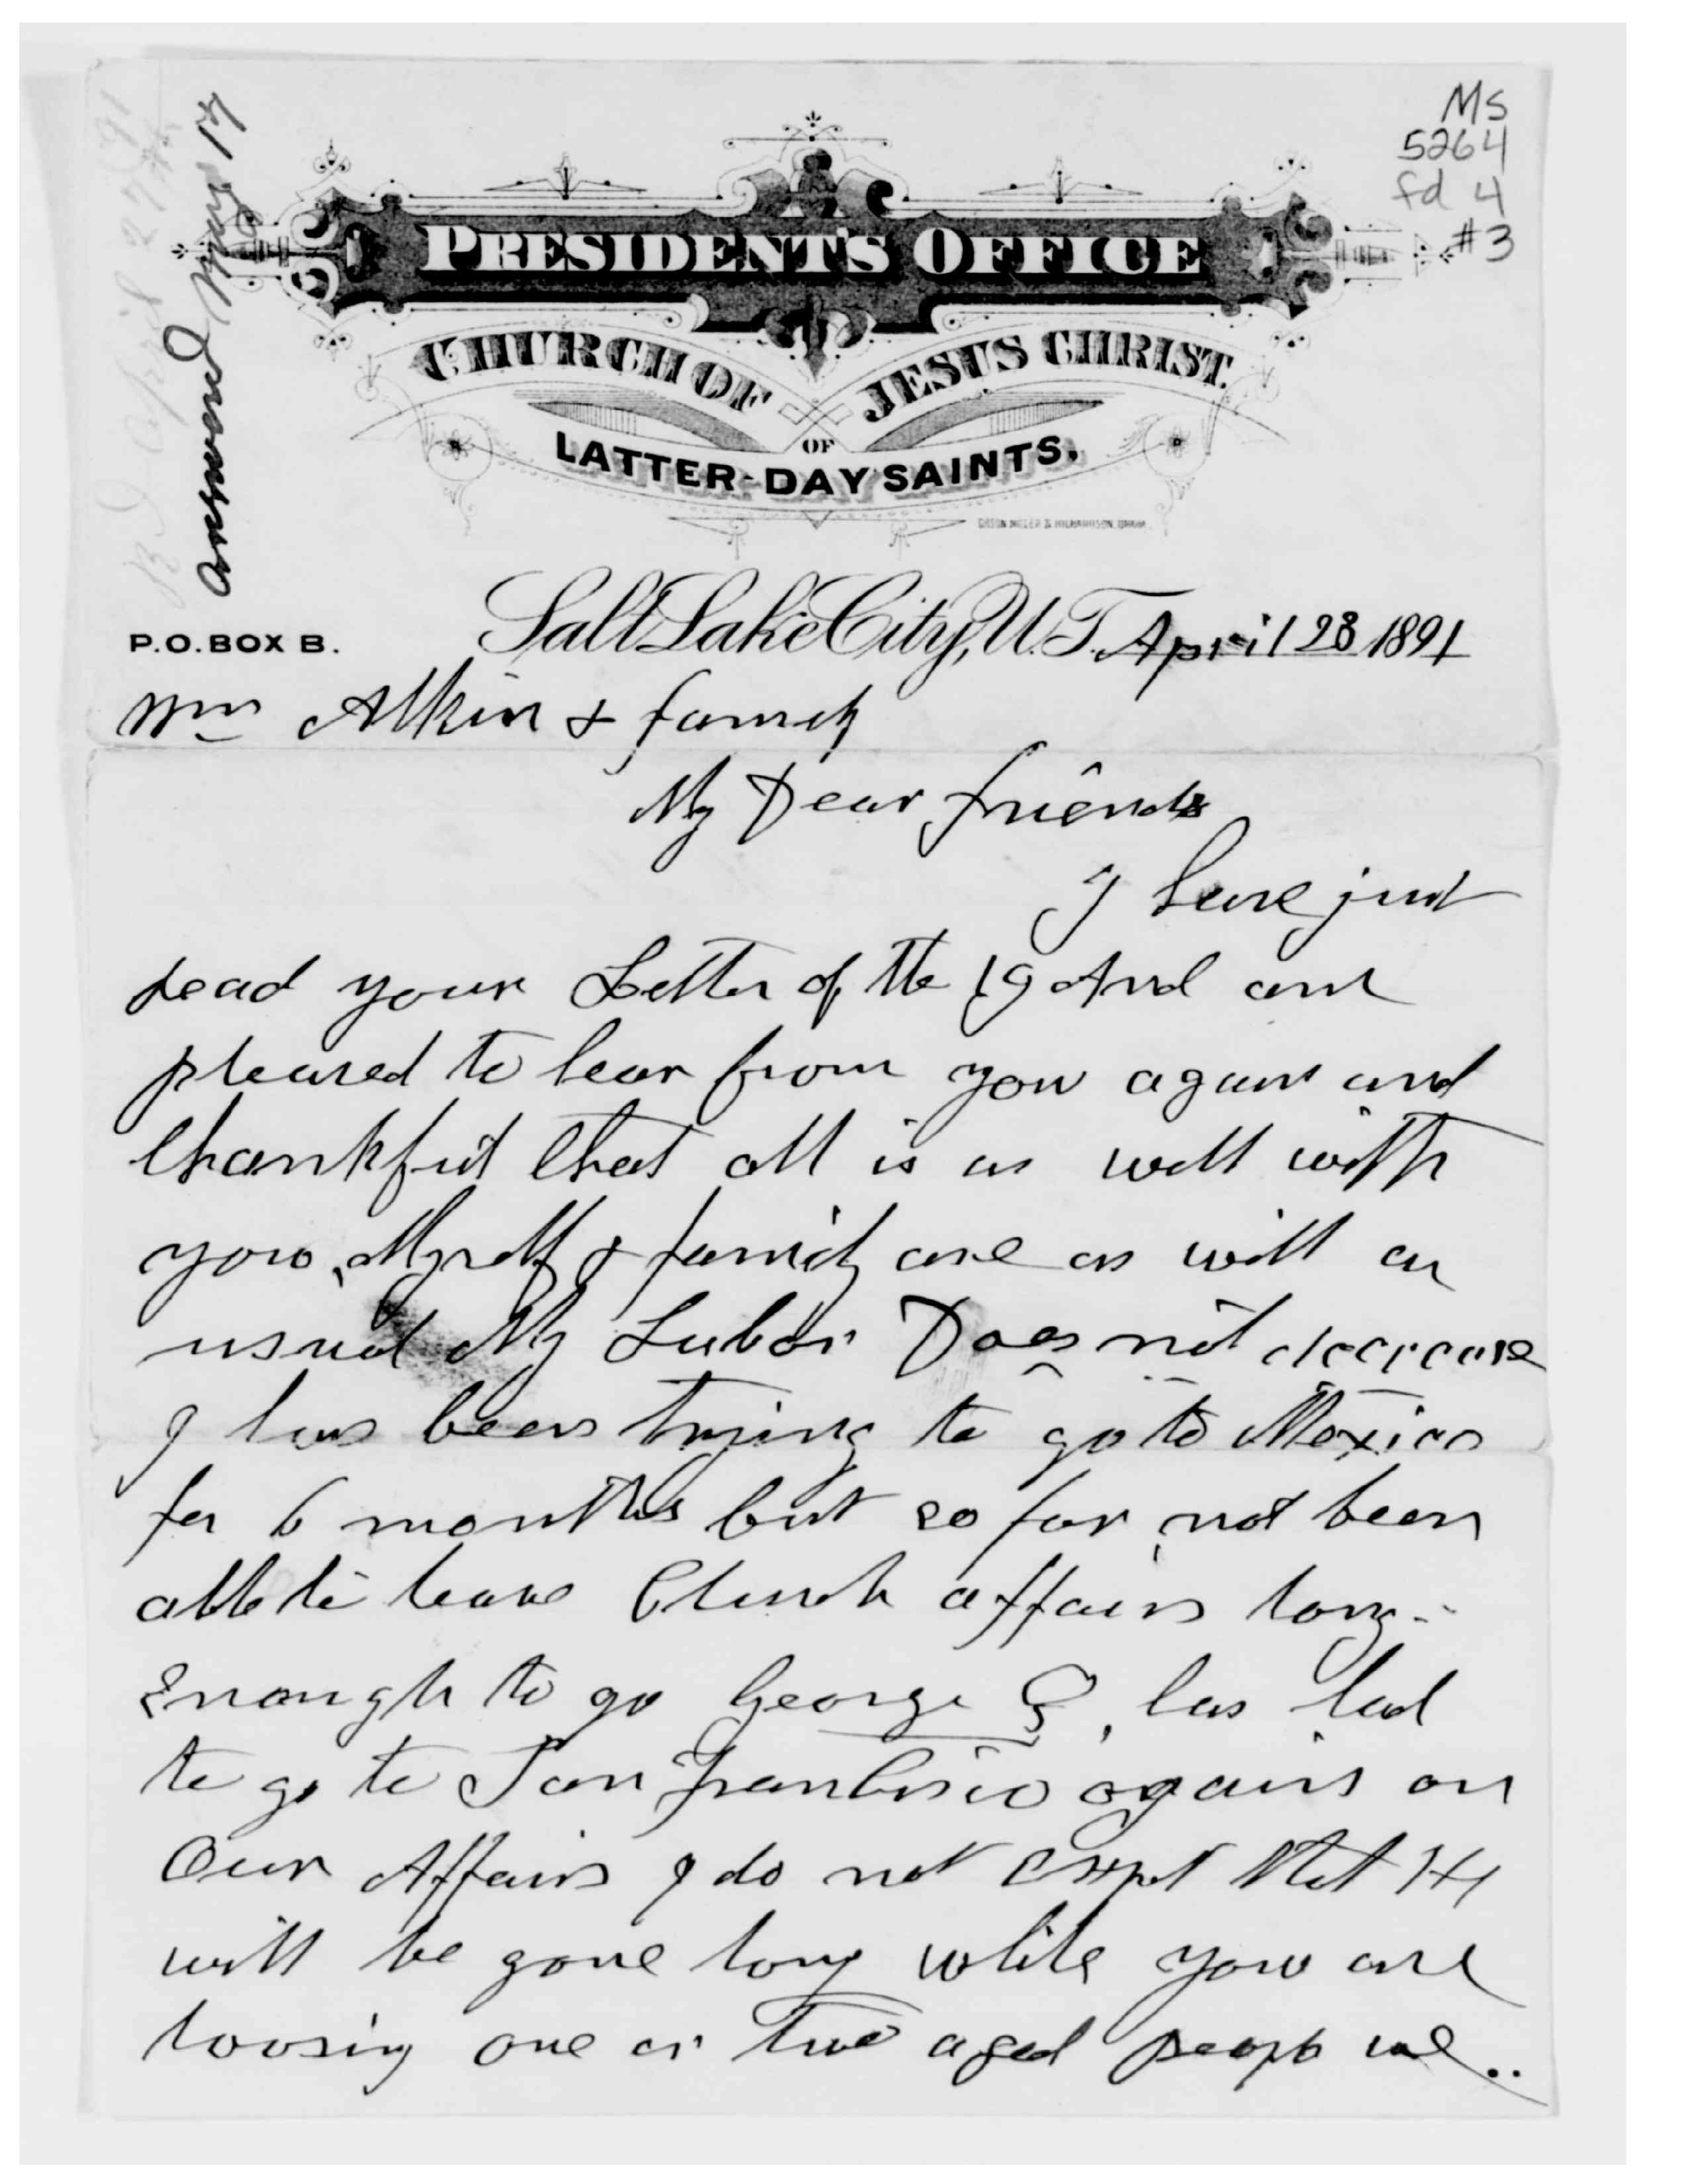 Ms
5264
fd 4
#3
Answered May 17
PRESIDENT'S OFFICE
CHURCH OF JESUS CHRIST
OF
LATTER-DAY SAINTS.
P.O. BOX B.
Salt Lake City, U.T. April 28 1891
Wm Atkin & family
My Dear friends
I have just
read your Letter of the 19 and am
pleased to hear from you again and
thankful that all is as well with
you, Myself & family are as well as
usual My Labor Does not decrease
I have been trying to go to Mexico
for 6 months but so far not been
able to leave Church affairs long
Enough to go George Q, has had
to go to San Francisco again on
Our Affairs I do not expet that He
will be gone long while you are
loosing one or two aged people we..